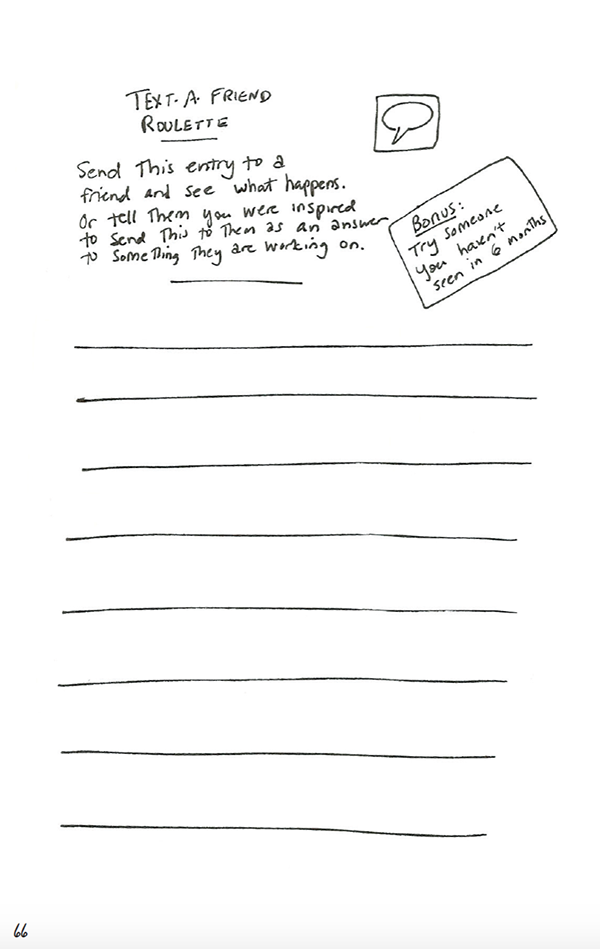 TEXT-A-FRIEND
ROULETTE
Send This entry to a
friend and see what happens.
Or tell Them you were inspired
to send This to Them as an answer
to something They are working on.
BONUS:
Try someone
you haven't
seen in 6 months
66